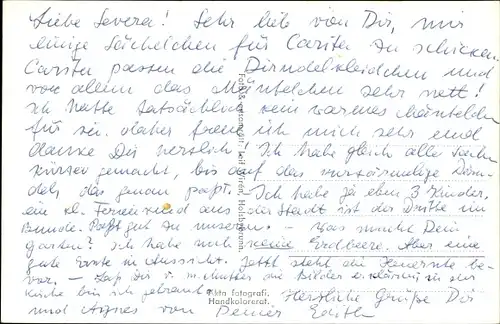 Liebe Severa! Sehr lieb von Dir, mir
einige Sächelchen für Carita zu schicken.
Carita passen die Dirndelkleidchen und
vor allem das Mäntelchen sehr nett!
Ich hatte tatsächlich kein warmes Mäntelchen
für sie, daher freue ich mich sehr und
danke Dir herzlich. Ich habe gleich alle Sachen
kürzer gemacht, bis auf das Dirn-
del, das genau paßt. Ich habe ja eben 3 Kinder,
ein kl. Ferienkind aus der Stadt ist der Dritte im
Bunde. Paßt gut zu unseren. – Was macht Dein
Garten? Ich habe noch keine Erdbeere. Aber eine
gute Ernte in Aussicht. Jetzt steht die Heuernte be-
vor. – Laß Dir v. m. Mutter die Bilder erklären in der
Kirche bin ich getraut. Herzliche Grüße Dir
und Agnes von Deiner Edith
Äkta fotografi.
Handkolorerat.